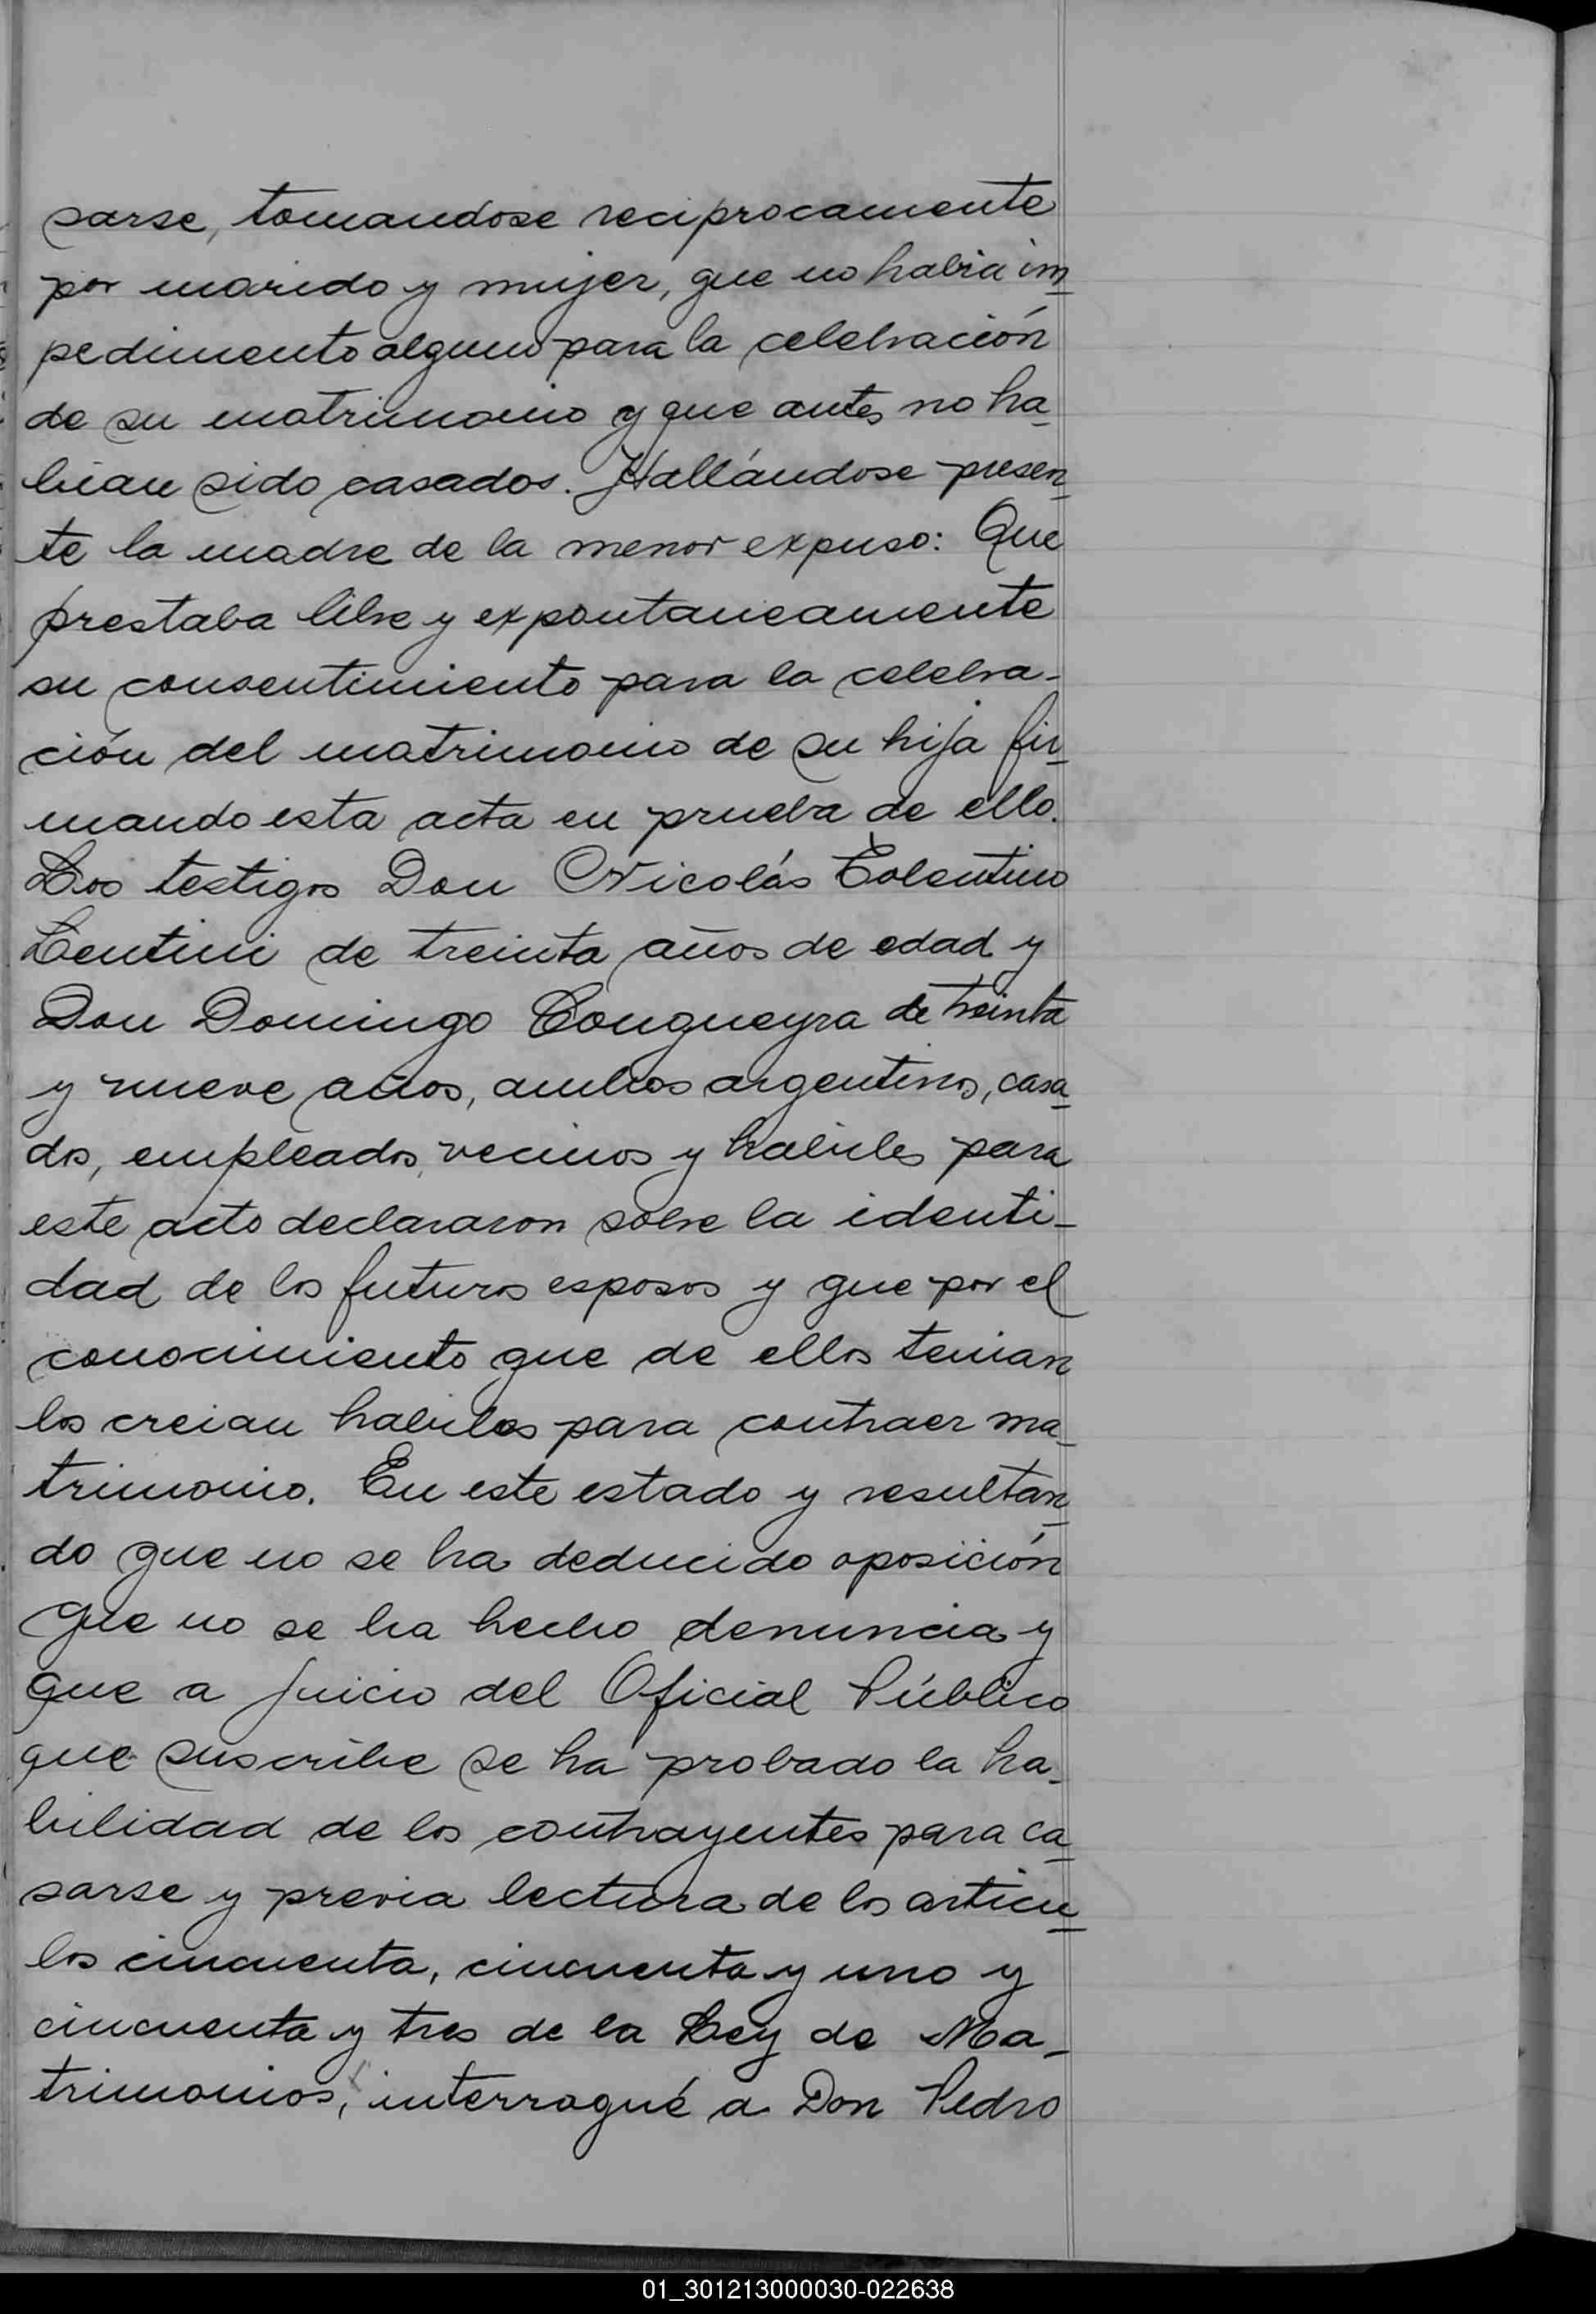 sarse, tomandose reciprocamente
por marido y mujer, que no habia im
pedimento alguno para la celebración
de su matrimonio y que antes no ha
bian sido casados. Hallándose presen
te la madre de la menor expuso: Que
prestaba libre y expontaneamente
su consentimiento para la celebra-
ción del matrimonio de su hija fir
mando esta acta en prueba de ello.
Los testigos Don Nicolás Tolentino
Lentini de treinta años de edad y
Don Domingo Congueyra de treinta
y nueve años, ambos argentinos, casa
dos, empleados, vecinos y habiles para
este acto declararon sobre la identi-
dad de los futuros esposos y que por el
conocimiento que de ellos tenian
los creian habiles para contraer ma
trimonio. En este estado y resultan
do que no se ha deducido oposición
que no se ha hecho denuncia y
que a juicio del Oficial Público
que suscribe se ha probado la ha-
bilidad de los contrayentes para ca
sarse y previa lectura de los articu
los cincuenta, cincuenta y uno y
cincuenta y tres de la Ley de Ma-
trimonios, interrogué a Don Pedro
01_301213000030-022638